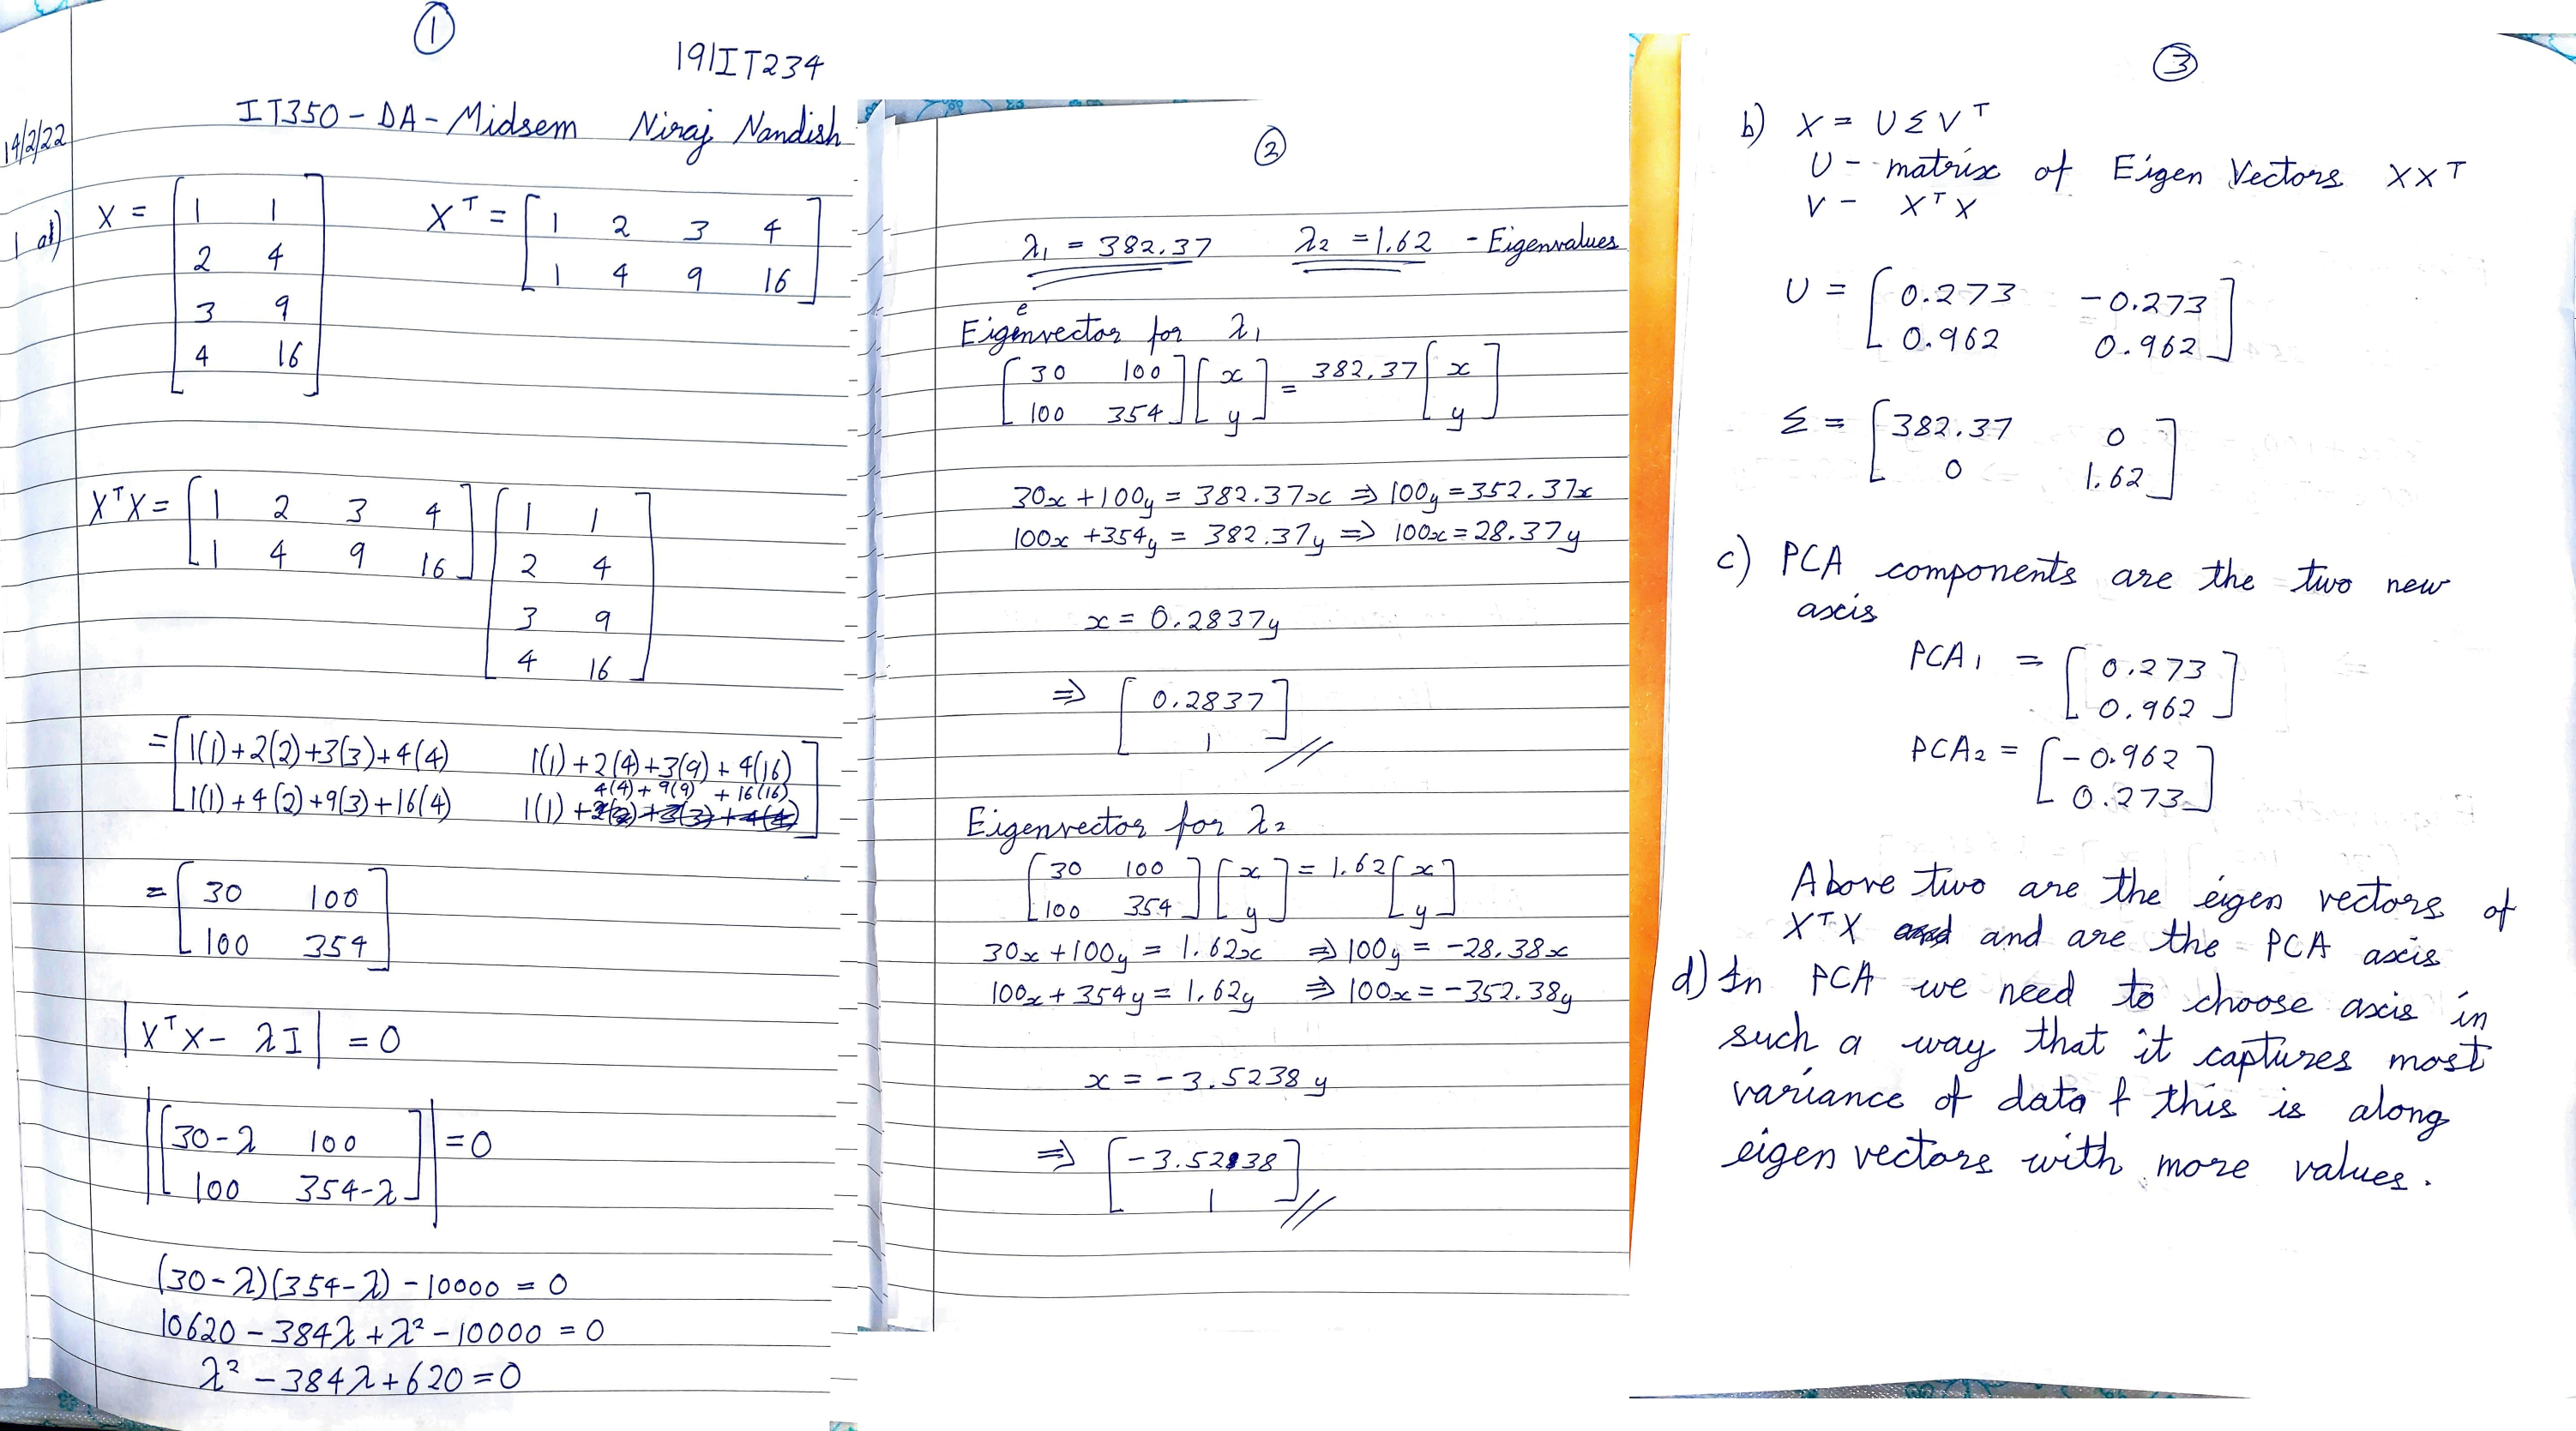 ①
191IT234
IT350 - DA - Midsem Niraj Nandish
14/2/22
1 a) X = [1 1
2 4
3 9
4 16]
X^T = [1 2 3 4
1 4 9 16]
X^T X = [1 2 3 4
1 4 9 16] [1 1
2 4
3 9
4 16]
= [1(1)+2(2)+3(3)+4(4) 1(1)+2(4)+3(9)+4(16)
1(1)+4(2)+9(3)+16(4) 1(1)+4(4)+9(9)+16(16)]
= [30 100
100 354]
|X^T X - λI| = 0
|[30-λ 100
100 354-λ]| = 0
(30-λ)(354-λ) - 10000 = 0
10620 - 384λ + λ² - 10000 = 0
λ² - 384λ + 620 = 0
②
λ₁ = 382.37 λ₂ = 1.62 - Eigenvalues
Eigenvector for λ₁
[30 100
100 354] [x
y] = 382.37 [x
y]
30x + 100y = 382.37x ⇒ 100y = 352.37x
100x + 354y = 382.37y ⇒ 100x = 28.37y
x = 0.2837y
⇒ [0.2837
1] //
Eigenvector for λ₂
[30 100
100 354] [x
y] = 1.62 [x
y]
30x + 100y = 1.62x ⇒ 100y = -28.38x
100x + 354y = 1.62y ⇒ 100x = -352.38y
x = -3.5238y
⇒ [-3.5238
1] //
③
b) X = U Σ V^T
U - matrix of Eigen Vectors XX^T
V - X^T X
U = [0.273 -0.273
0.962 0.962]
Σ = [382.37 0
0 1.62]
c) PCA components are the two new
axis
PCA₁ = [0.273
0.962]
PCA₂ = [-0.962
0.273]
Above two are the eigen vectors of
X^T X and and are the PCA axis
d) In PCA we need to choose axis in
such a way that it captures most
variance of data & this is along
eigen vectors with more values.